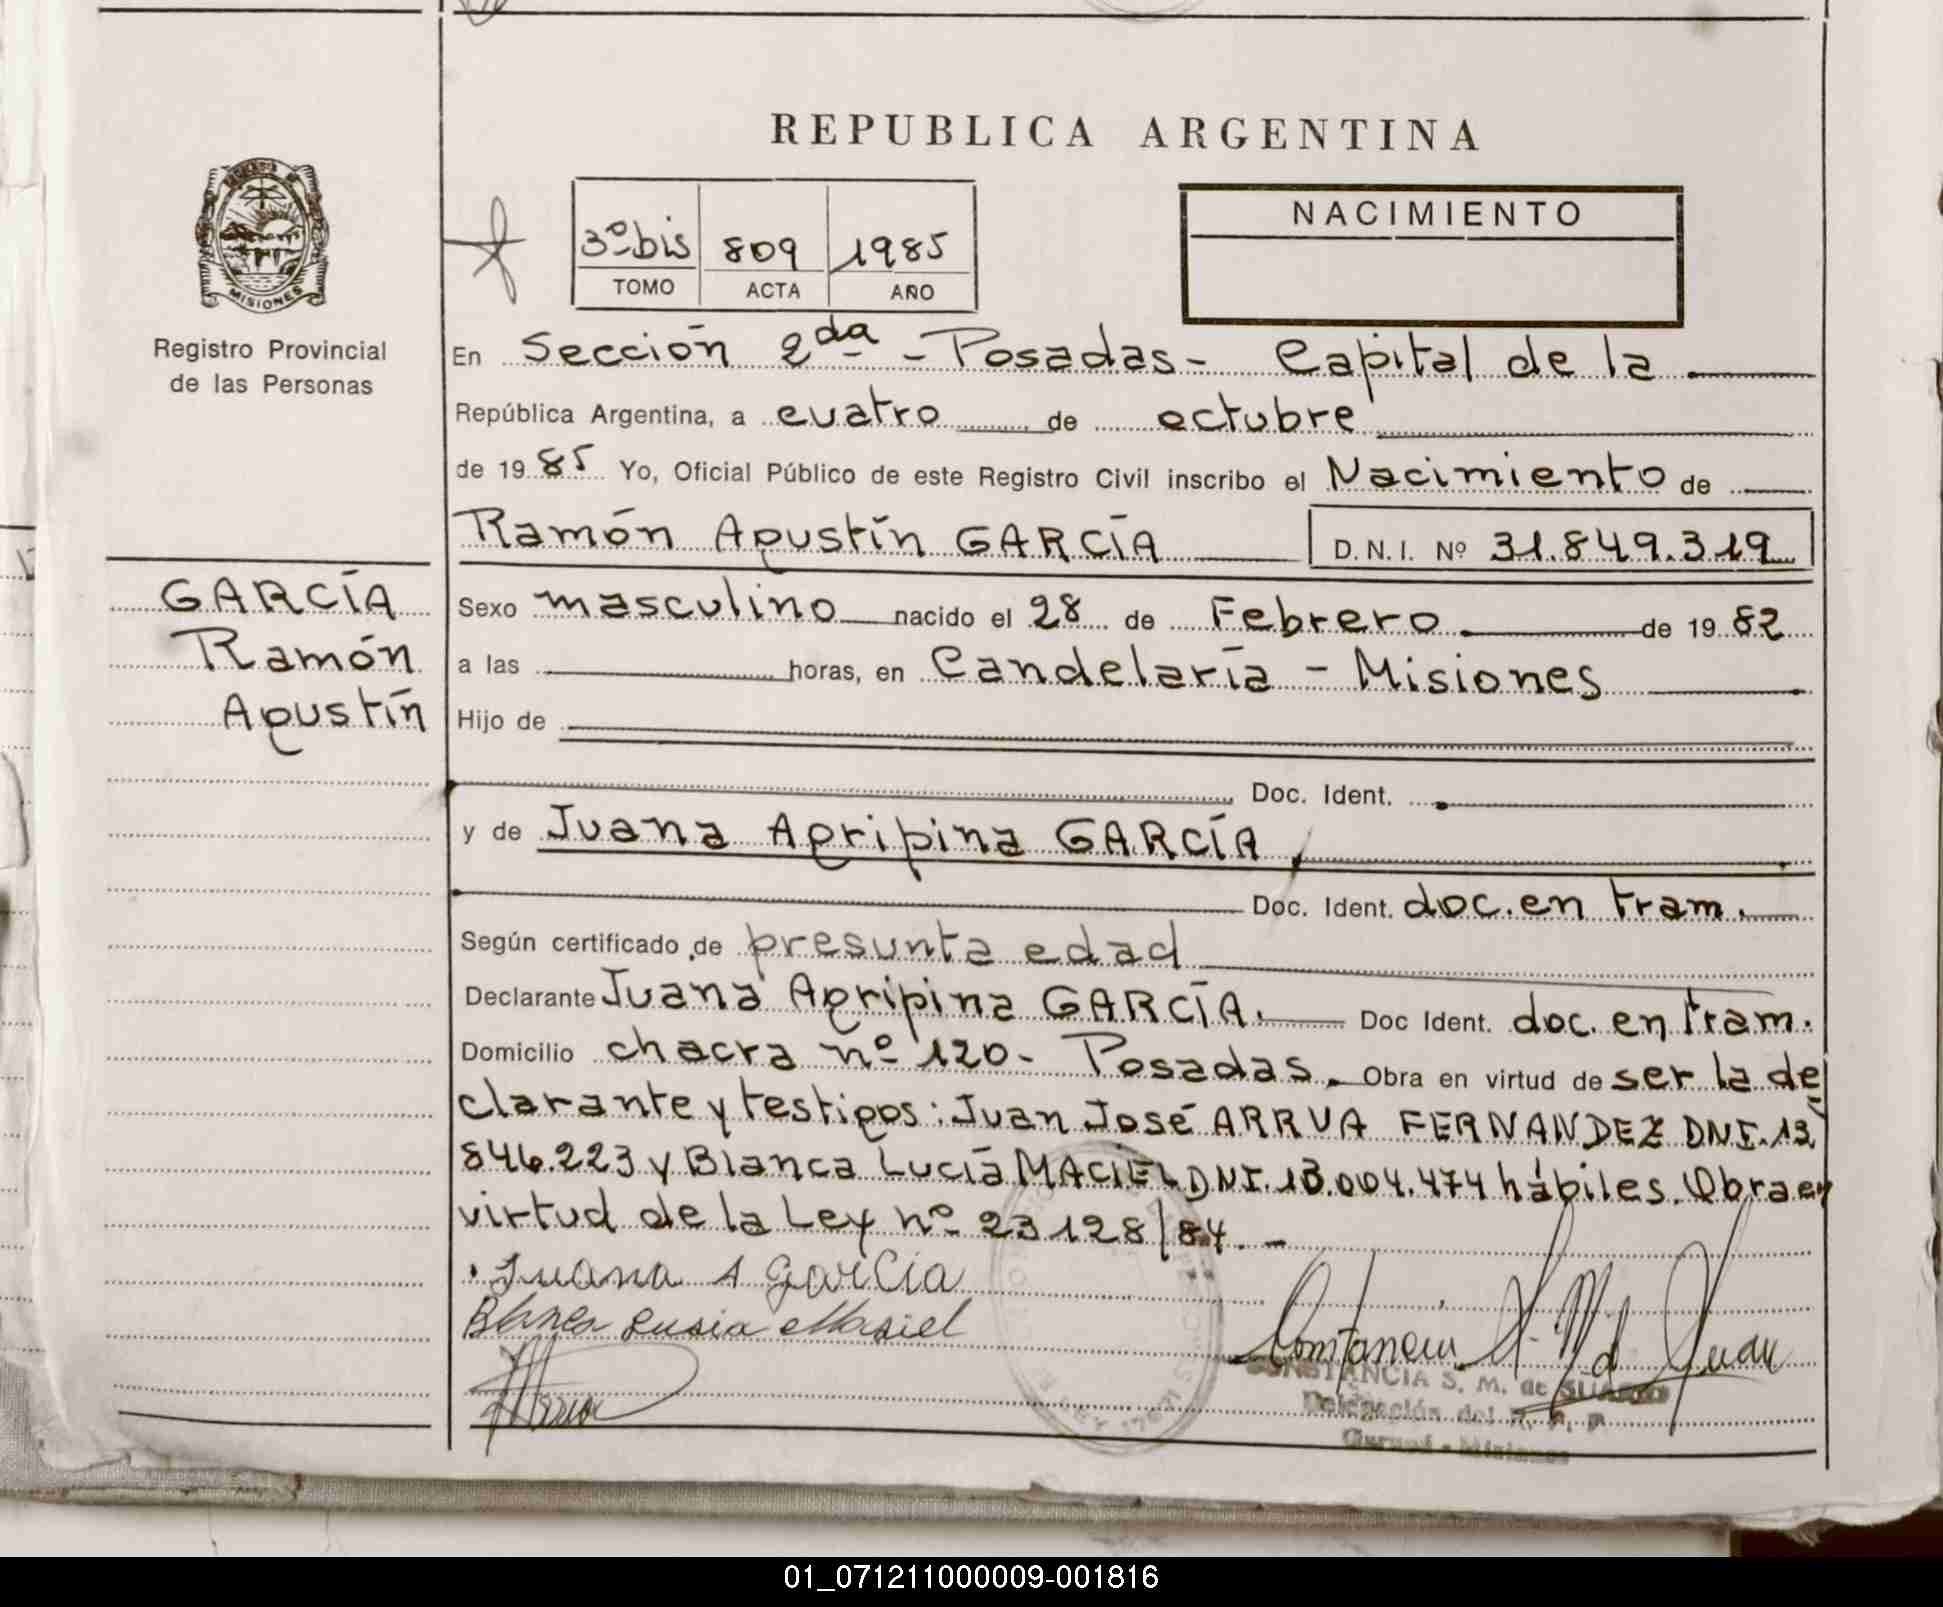 REPUBLICA ARGENTINA
MISIONES
Registro Provincial
de las Personas
3º bis 809 1985
TOMO ACTA AÑO
NACIMIENTO
En Sección 2da - Posadas - Capital de la
República Argentina, a cuatro de octubre
de 1985 Yo, Oficial Público de este Registro Civil inscribo el Nacimiento de
Ramón Agustín GARCÍA D.N.I. Nº 31.849.319
GARCÍA
Ramón
Agustín
Sexo masculino nacido el 28 de Febrero de 1982
a las horas, en Candelaría - Misiones
Hijo de
Doc. Ident.
y de Juana Agripina GARCÍA
Doc. Ident. doc. en tram.
Según certificado de presunta edad
Declarante Juana Agripina GARCÍA. Doc Ident. doc. en tram.
Domicilio chacra nº 120 - Posadas. Obra en virtud de ser la de
clarante y testigos: Juan José ARRUA FERNANDEZ DNI. 13
846.223 y Blanca Lucía MACIEL DNI. 13.004.474 hábiles. Obra en
virtud de la Ley nº 23128/84. -
Juana A García
Blanca Lusia Masiel
CONSTANCIA S. M. de
Delegación del R. P. P
Garupá - Misiones
01_071211000009-001816